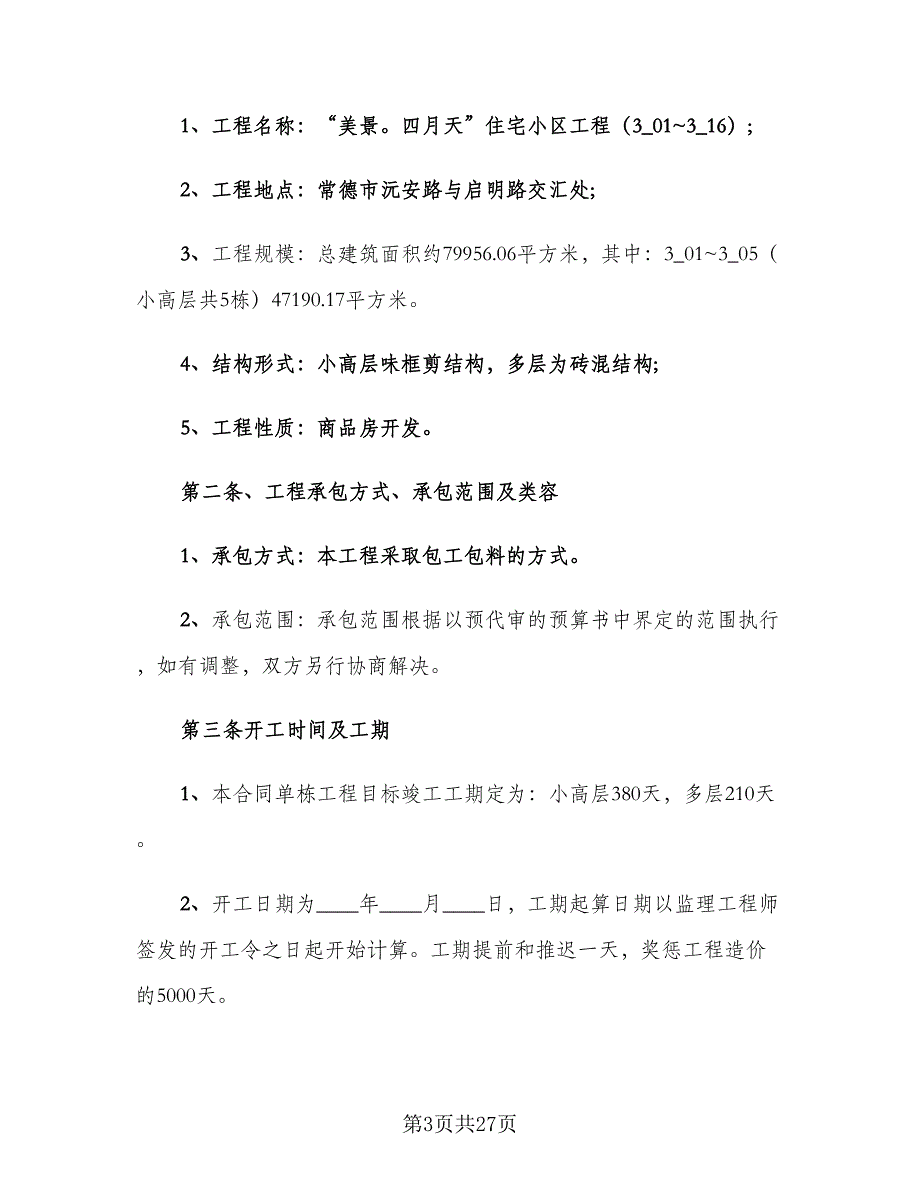 1、工程名称：“美景。四月天”住宅小区工程（3_01~3_16）;
2、工程地点：常德市沅安路与启明路交汇处;
3、工程规模：总建筑面积约79956.06平方米，其中：3_01~3_05（
小高层共5栋）47190.17平方米。
4、结构形式：小高层味框剪结构，多层为砖混结构;
5、工程性质：商品房开发。
第二条、工程承包方式、承包范围及类容
1、承包方式：本工程采取包工包料的方式。
2、承包范围：承包范围根据以预代审的预算书中界定的范围执行
，如有调整，双方另行协商解决。
第三条开工时间及工期
1、本合同单栋工程目标竣工工期定为：小高层380天，多层210天
。
2、开工日期为____年____月____日，工期起算日期以监理工程师
签发的开工令之日起开始计算。工期提前和推迟一天，奖惩工程造价
的5000天。
第3页共27页